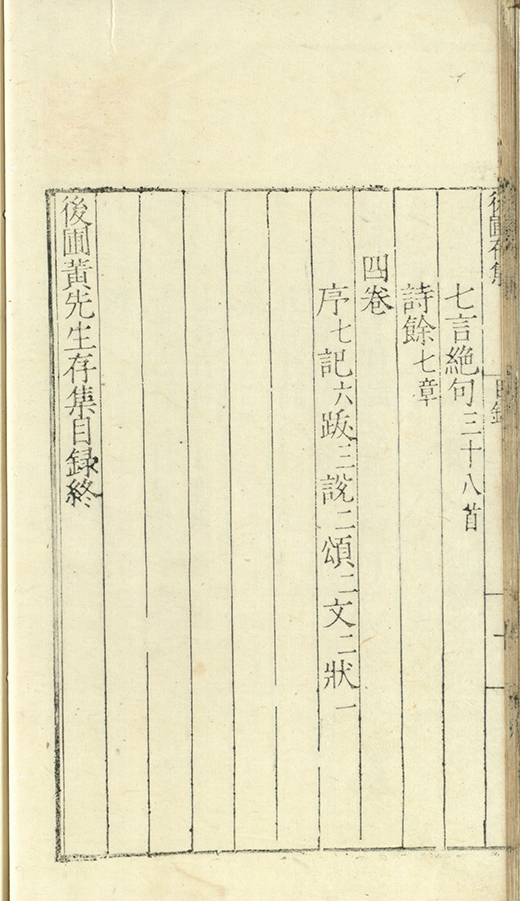 後圃存集
目錄
七言絶句三十八首
詩餘七章
四卷
序七記六跋三說二頌二文二狀一
後圃黃先生存集目録終